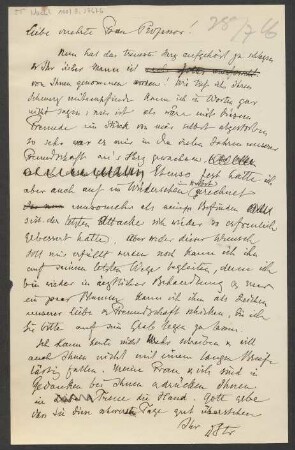 25/7 66
Liebe verehrte Frau Professor!
Nun hat das treueste Herz aufgehört zu schlagen
u Ihr lieber Mann ist
von Ihnen genommen worden! Wie tief ich Ihren
Schmerz mitempfinde kann ich in Worten gar
nicht sagen; mir ist als wäre mit diesem
Freunde ein Stück von mir selbst abgestorben
so sehr war er mir in den vielen Jahren unserer
Freundschaft ans Herz gewachsen.
Ebenso fest hatte ich
aber auch auf ein Wiedersehen gerechnet
umsomehr als meine Befinden
seit der letzten Attacke sich wieder so erfreulich
gebessert hatte. Aber weder dieser Wunsch
soll mir erfüllt werden noch kann ich ihn
auf seinem letzten Wege begleiten, denn ich
bin wieder in ärztlicher Behandlung u nur
ein paar Blumen kann ich ihm als Zeichen
unserer Liebe u Freundschaft schicken, die ich
Sie bitte auf sein Grab legen zu lassen.
Ich kann heute nicht mehr schreiben u will
auch Ihnen nicht mit einem langen Briefe
lästig fallen. Meine Frau u ich sind in
Gedanken bei Ihnen u drücken Ihnen
in Treue die Hand. Gott gebe
das Sie diese schweren Tage gut überstehen
Ihr